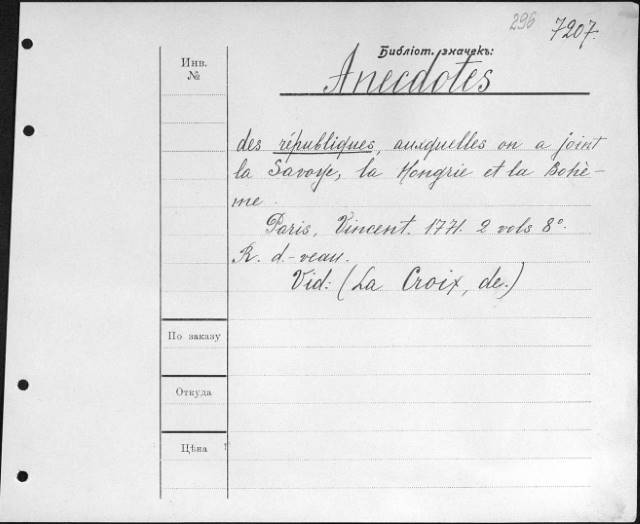 296 7207.
Инв.
№
Библіот. значекъ:
Anecdotes
des républiques, auxquelles on a joint
la Savoye, la Hongrie et la Bohè-
me.
Paris, Vincent. 1771. 2 vols 8°.
R. d.-veau.
Vid: (La Croix, de.)
По заказу
Откуда
Цѣна